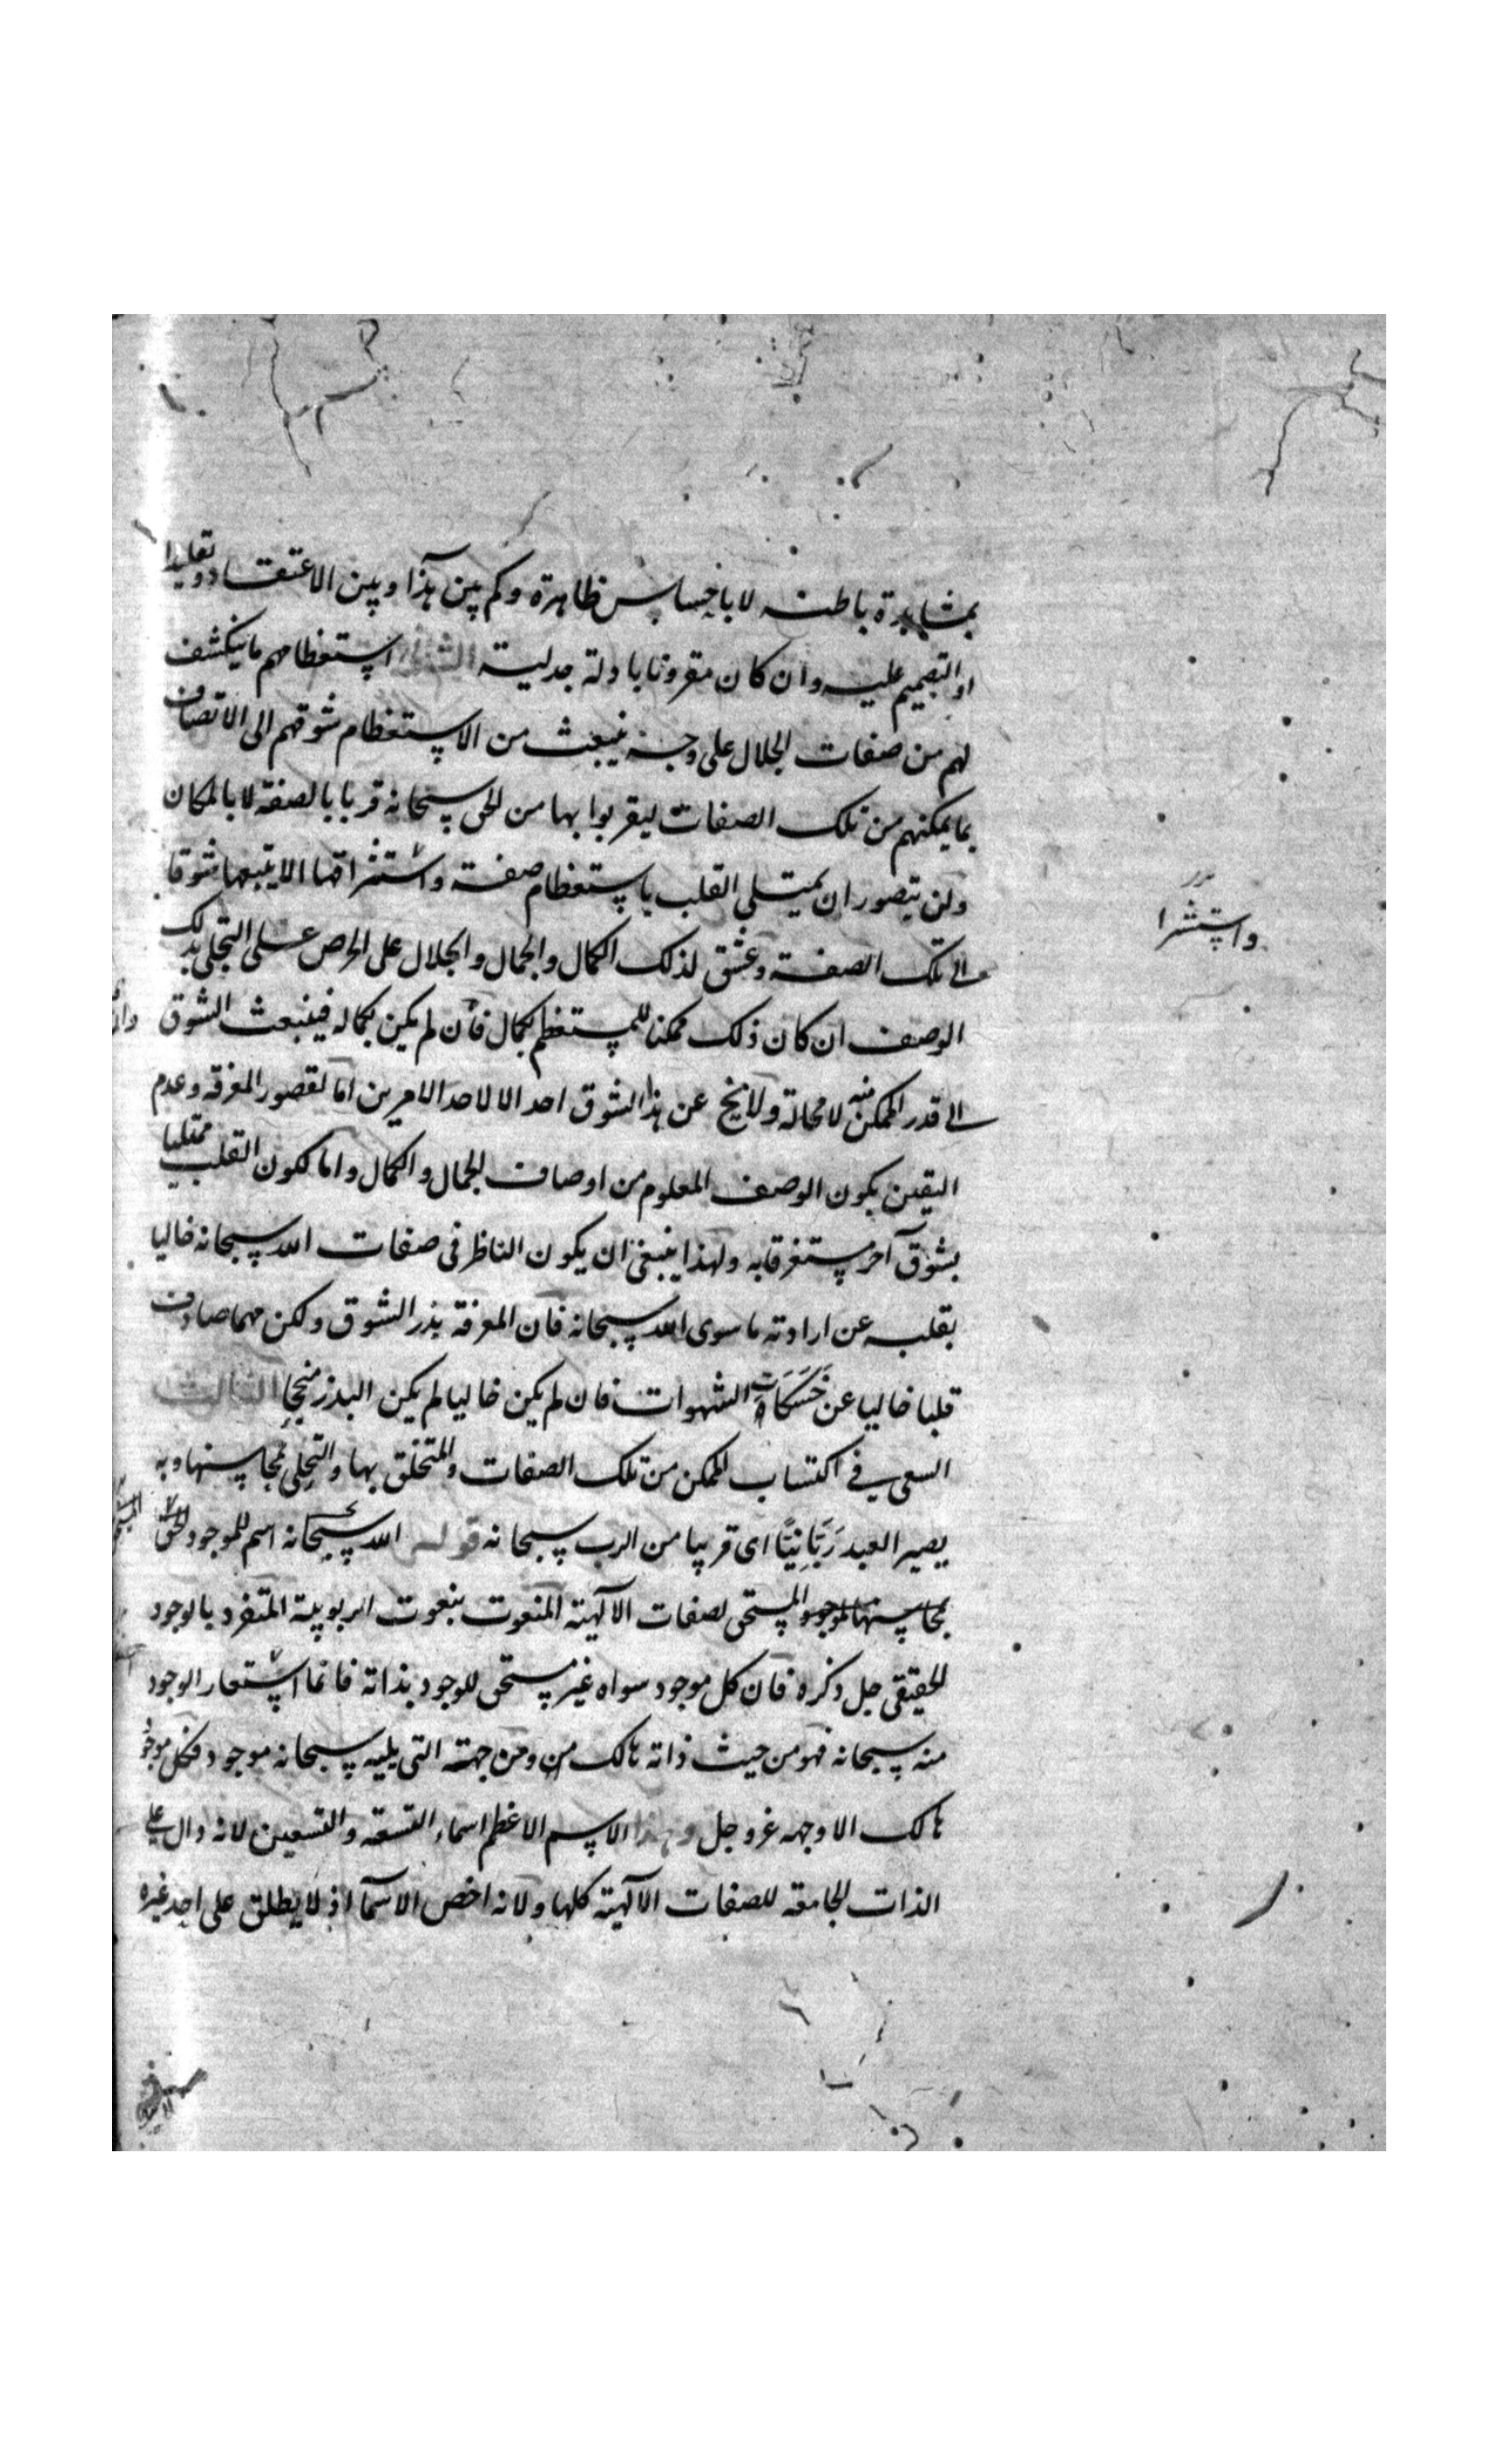 بمشاهدة باطنه لا باحساس ظاهرة وكم بين هذا وبين الاعتقاد تقليدا
او التصميم عليه وان كان مقرونا بادلة جدلية الثانى استعظامهم ما ينكشف
لهم من صفات الجلال على وجه ينبعث من الاستعظام شوقهم الى الاتصاف
بما يمكنهم من تلك الصفات ليقربوا بها من الحق سبحانه قربا بالصفة لا بالمكان
ولن يتصور ان يمتلى القلب باستعظام صفة واستشراقها الا يتبعها شوقا
واستشرا
الى تلك الصفة وعشق لذلك الكمال والجمال والجلال على الحرص على التجلى بذلك
الوصف ان كان ذلك ممكنا للمستعظم بكمال فان لم يكن بكماله فينبعث الشوق
الى قدر الممكن منه لا محالة ولا يخ عن هذا الشوق احد الا لاحد الامرين اما لقصور المعرفة وعدم
اليقين بكون الوصف المعلوم من اوصاف الجمال والكمال واما لكون القلب ممتليا
بشوق آخر مستغرقا به ولهذا ينبغى ان يكون الناظر فى صفات الله سبحانه خاليا
بقلبه عن ارادته ما سوى الله سبحانه فان المعرفة بذر الشوق ولكن مهما صادف
قلبا خاليا عن حَسَكَات الشهوات فان لم يكن خاليا لم يكن البذر منجحا الثالث
السعى فى اكتساب الممكن من تلك الصفات والتخلق بها والتحلى بمحاسنها وبه
يصير العبد رَبَّانِيًّا اى قريبا من الرب سبحانه قوله الله سبحانه اسم للموجود الحق
بمحاسنها للموجود المستحق لصفات الالهية المنعوت بنعوت الربوبية المتفرد بالوجود
الحقيقى جل ذكره فان كل موجود سواه غير مستحق للوجود بذاته فانما استعار الوجود
منه سبحانه فهو من حيث ذاته هالك من ومن جهته التى يليه سبحانه موجود فكل موجود
هالك الا وجهه عز وجل وهذا الاسم الاعظم اسماء التسعة والتسعين لانه دال على
الذات الجامعة للصفات الالهية كلها ولانه اخص الاسماء اذ لا يطلق على احد غيره